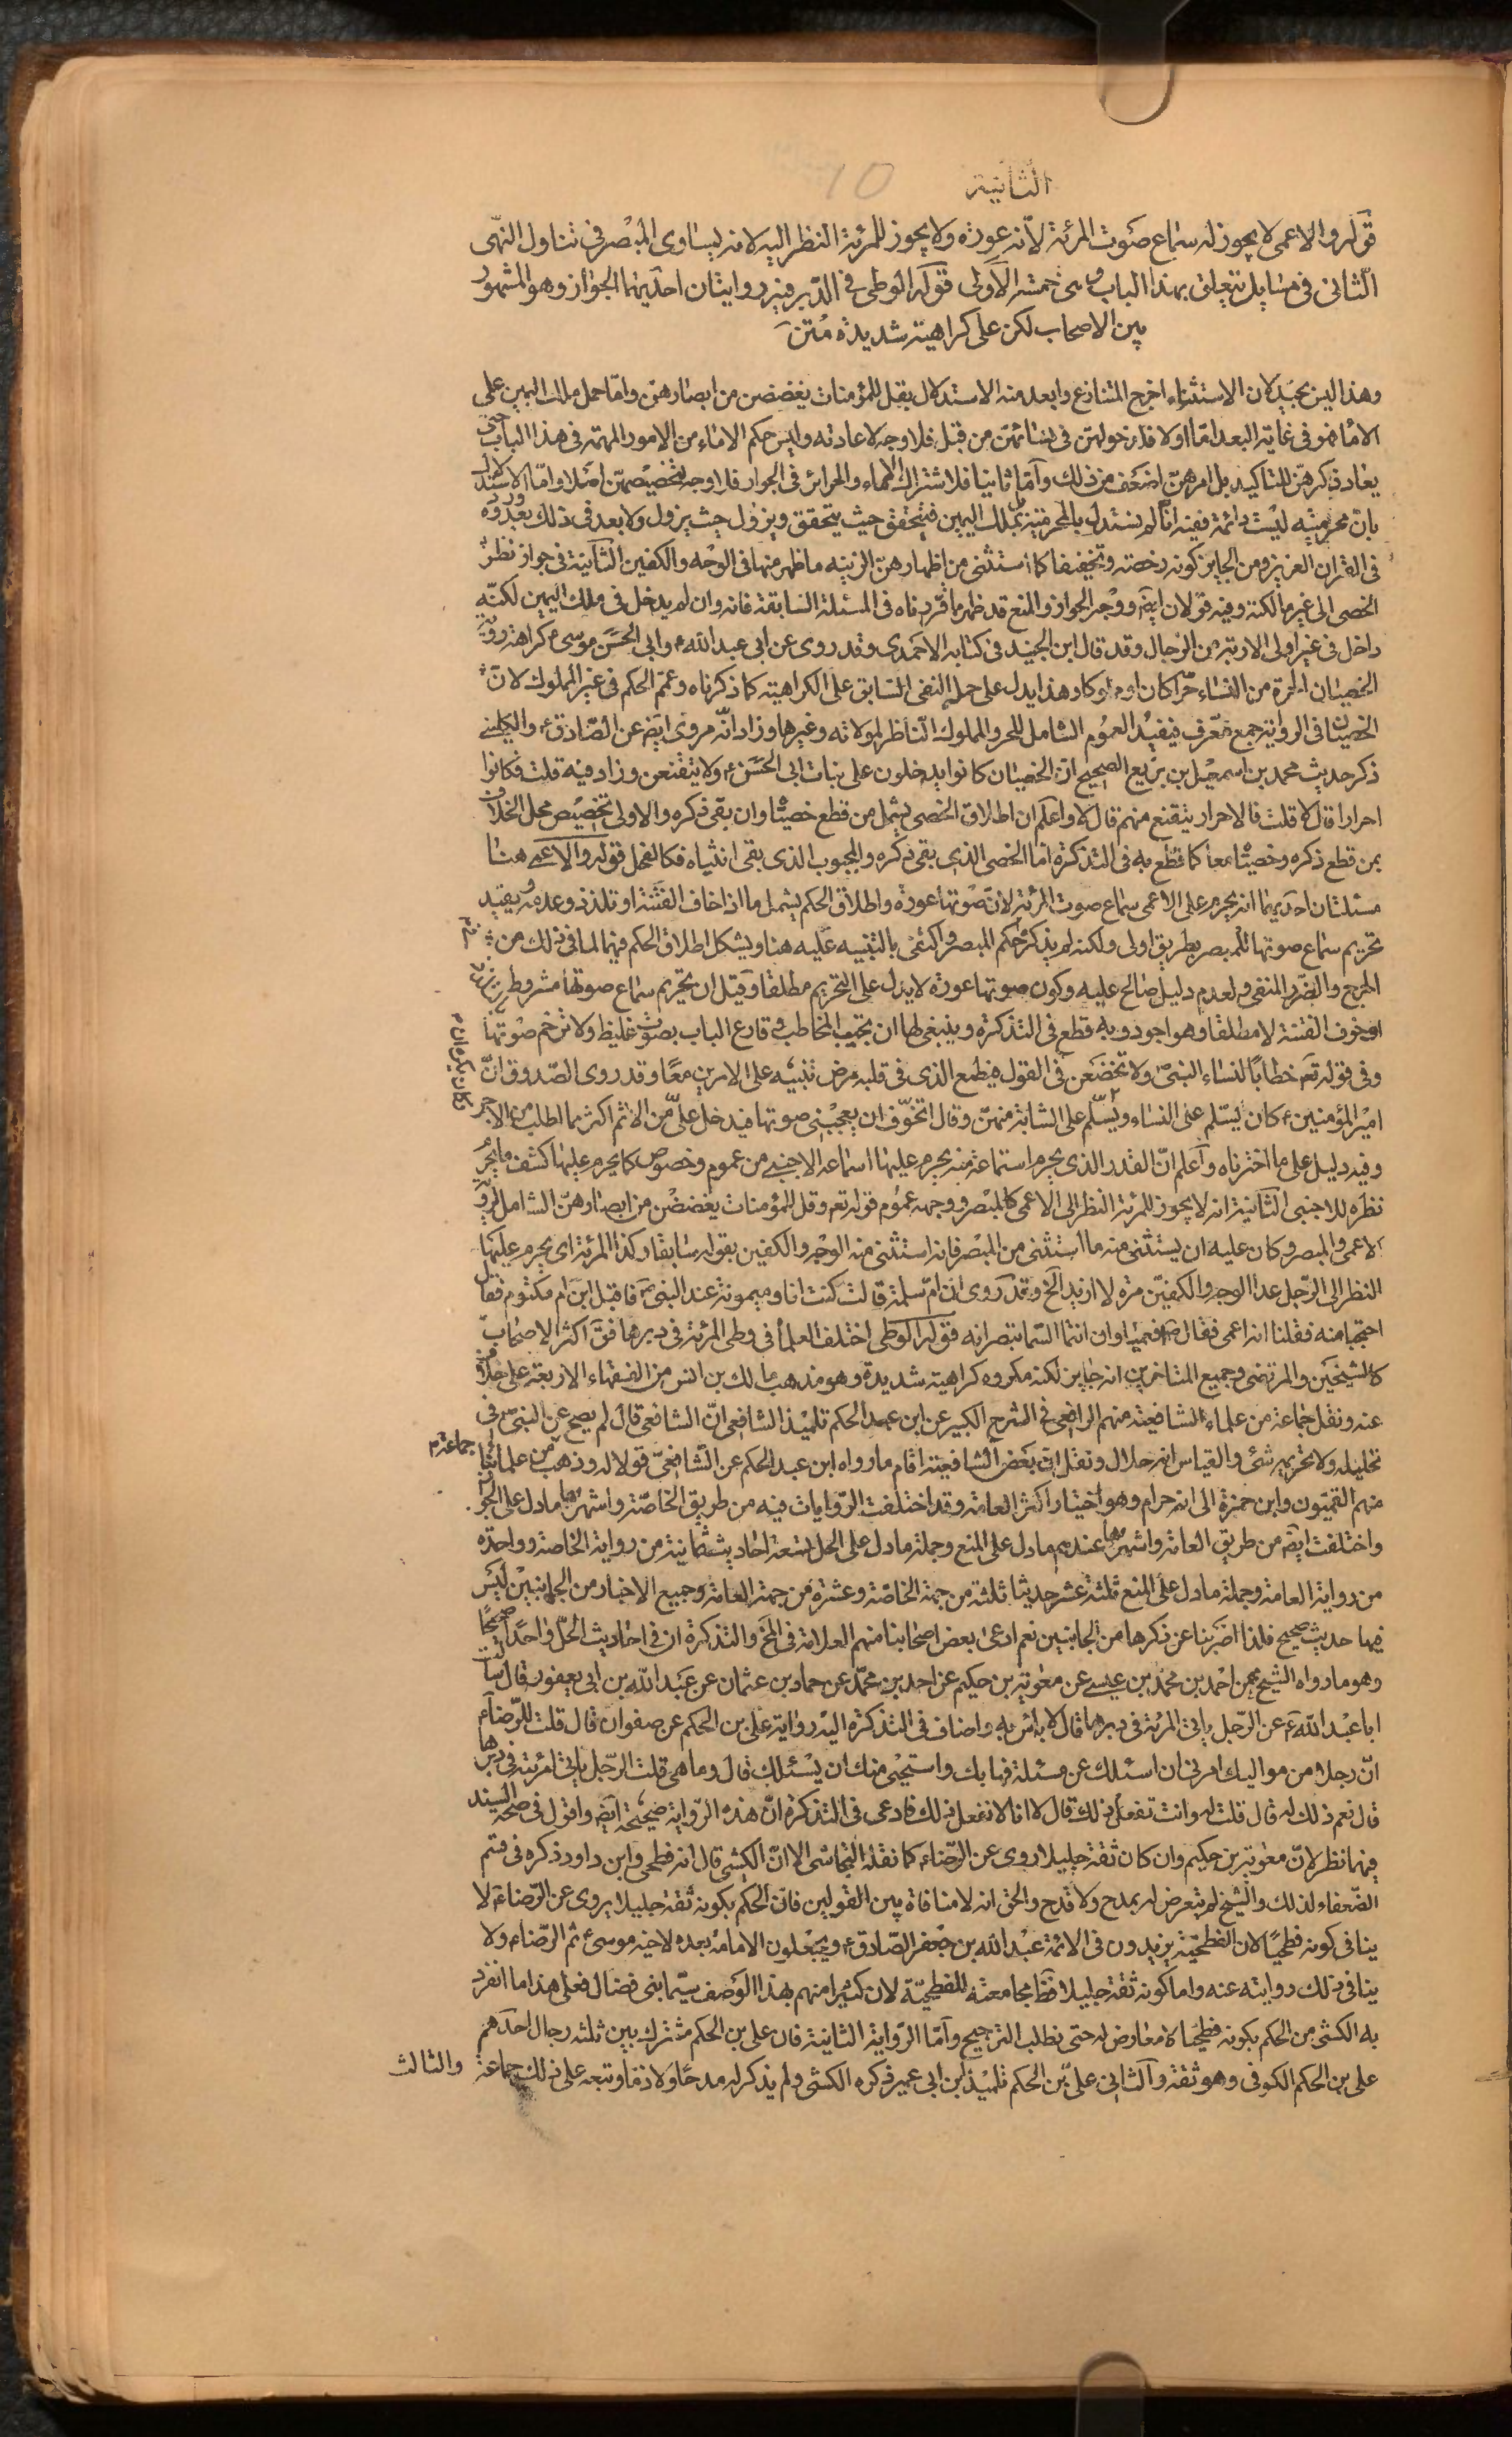 10
الثانية
قوله والاعمى لا يجوز له سماع صوت المرئة لانه عورة ولا يجوز للمرئة النظر اليه لانه يساوى المبصر فى تناول النهى
الثانى فى مسايل تتعلق بهذا الباب وهى خمسة الاولى قوله الوطى فى الدبر فيه روايتان احديهما الجواز وهو المشهور
بين الاصحاب لكن على كراهية شديدة متن
وهذا ليس بجيد لان الاستثناء اخرج المتنازع وابعد منه الاستدلال بقل للمؤمنات يغضضن من ابصارهن واما حمل ملك اليمين على
الاماء فهو فى غاية البعد اما اولا فلدخولهن فى نسائهن من قبل فلا وجه لاعادته وليس حكم الاماء من الامور المهمة فى هذا الباب حتى
يعاد ذكرهن للتاكيد بل امرهن اضعف من ذلك واما ثانيا فلاشتراك الاماء والحرائر فى الجواز فلا وجه لتخصيصهن اصلا واما الاستدلال
بان محرميته ليست دائمة ففيه انا لم نستدل بالمحرمية بل بملك اليمين فيتحقق حيث يتحقق ويزول حيث يزول ولا بعد فى ذلك بعد وروده
فى القران العزيز ومن الجايز كونه رخصة وتخفيفا كما استثنى من اظهارهن الزينة ما ظهر منها فى الوجه والكفين الثانية فى جواز نظر
الخصى الى غير مالكته وفيه قولان ايضا ووجه الجواز والمنع قد ظهر مما قررناه فى المسئلة السابقة فانه وان لم يدخل فى ملك اليمين لكنه
داخل فى غير اولى الاربة من الرجال وقد قال ابن الجنيد فى كتابه الاحمدى وقد روى عن ابى عبد الله ع وابى الحسن موسى ع كراهة روية
الخصيان الحرة من النساء حرا كان او مملوكا وهذا يدل على حمله النفى السابق على الكراهية كما ذكرناه وعمم الحكم فى غير المملوك لان
الخصيان فى الرواية جمع معرف فيفيد العموم الشامل للحر والمملوك الناظر لمولاته وغيرها وزاد انه مروى ايضا عن الصادق ع والكلينى
ذكر حديث محمد بن اسمعيل بن بزيع الصحيح ان الخصيان كانوا يدخلون على بنات ابى الحسن ع ولا يتقنعن وزاد فيه قلت فكانوا
احرارا قال لا قلت فالاحرار يتقنع منهم قال لا واعلم ان اطلاق الخصى يشمل من قطع خصيتاه وان بقى ذكره والاولى تخصيص محل الخلاف
بمن قطع ذكره وخصيتاه معا كما قطع به فى التذكرة اما الخصى الذى بقى ذكره والمجبوب الذى بقى انثياه فكالفحل قوله والاعمى هنا
مسئلتان احديهما انه يحرم على الاعمى سماع صوت المرئة لان صوتها عورة واطلاق الحكم يشمل ما اذا خاف الفتنة او تلذذ وعدمه ويفيد
تحريم سماع صوتها للمبصر بطريق اولى ولكنه لم يذكر حكم المبصر واكتفى بالتنبيه عليه هنا ويشكل اطلاق الحكم فيهما لما فى ذلك من
الحرج والضرر المنفى ولعدم دليل صالح عليه وكون صوتها عورة لا يدل على التحريم مطلقا وقيل ان تحريم سماع صوتها مشروط بالتلذذ
او خوف الفتنة لا مطلقا وهو اجود وبه قطع فى التذكرة وينبغى لها ان تجيب المخاطب و قارع الباب بصوت غليظ ولا ترخم صوتها
وفى قوله تعم خطابا لنساء النبى ولا تخضعن فى القول فيطمع الذى فى قلبه مرض تنبيه على الامرين معا وقد روى الصدوق ان
امير المؤمنين ع كان يسلم على النساء ويسلم على الشابة منهن وقال اتخوف ان يعجبنى صوتها فيدخل على من الاثم اكثر مما اطلب من الاجر
وفيه دليل على ما اخترناه واعلم ان القدر الذى يحرم استماعه منه يحرم عليها اسماعه الاجنبى من عموم وخصوص كما يحرم عليها كشف ما يحرم
نظره للاجنبى الثانية انه لا يجوز للمرئة النظر الى الاعمى كالمبصر ووجهه عموم قوله تعم وقل للمؤمنات يغضضن من ابصارهن الشامل لروية
الاعمى والمبصر وكان عليه ان يستثنى منه ما استثنى من المبصر فانه استثنى منه الوجه والكفين بقوله سابقا وكذا المرئة اى يحرم عليها
النظر الى الرجل عدا الوجه والكفين مرة لا ازيد الخ وقد روى ان ام سلمة قالت كنت انا وميمونة عند النبى ص فاقبل ابن ام مكتوم فقال
احتجبا منه فقلنا انه اعمى فقال ص افعمياوان انتما الستما تبصرانه قوله الوطى اختلف العلماء فى وطى المرئة فى دبرها فق اكثر الاصحاب
كالشيخين والمرتضى وجميع المتاخرين انه جايز لكنه مكروه كراهية شديدة وهو مذهب مالك بن انس من الفقهاء الاربعة على خلاف
عنه ونقل جماعة من علماء الشافعية منهم الرافعى فى الشرح الكبير عن ابن عبد الحكم تلميذ الشافعى ان الشافعى قال لم يصح عن النبى ص فى
تحليله ولا تحريمه شئ والقياس انه حلال ونقل ان بعض الشافعية اقام ما رواه ابن عبد الحكم عن الشافعى قولا له وذهب جماعة من علمائنا
منهم القميون وابن حمزة الى انه حرام وهو اختيار اكثر العامة وقد اختلفت الروايات فيه من طريق الخاصة واشهرها ما دل على الجواز
واختلفت ايضا من طريق العامة واشهرها عندهم ما دل على المنع وجملة ما دل على الحل تسعة احاديث ثمانية من رواية الخاصة وواحدة
من رواية العامة وجملة ما دل على المنع ثلثة عشر حديثا ثلثة من جهة الخاصة وعشرة من جهة العامة وجميع الاخبار من الجانبين ليس
فيها حديث صحيح فلذا اضربنا عن ذكرها من الجانبين نعم ادعى بعض اصحابنا منهم العلامة فى المخ والتذكرة ان فى احاديث الحل واحدا صحيحا
وهو ما رواه الشيخ عن احمد بن محمد بن عيسى عن معوية بن حكيم عن احمد بن محمد عن حماد بن عثمان عن عبد الله بن ابى يعفور قال سالت
ابا عبد الله ع عن الرجل ياتى المرئة فى دبرها قال لا باس به واضاف فى التذكرة اليه رواية على بن الحكم عن صفوان قال قلت للرضا ع
ان رجلا من مواليك امرنى ان اسئلك عن مسئلة فهابك واستحيى منك ان يسئلك قال وما هى قلت الرجل ياتى امرئته فى دبرها
قال نعم ذلك له قال قلت له وانت تفعل ذلك قال لا انا لا نفعل ذلك فادعى فى التذكرة ان هذه الرواية صحيحة ايضا واقول فى صحة السند
فيهما نظر لان معوية بن حكيم وان كان ثقة جليلا روى عن الرضا ع كما نقله النجاشى الا ان الكشى قال انه فطحى وابن داود ذكره فى قسم
الضعفاء لذلك والشيخ لم يتعرض له بمدح ولا قدح والحق انه لا منافاة بين القولين فان الحكم بكونه ثقة جليلا يروى عن الرضا ع لا
ينافى كونه فطحيا لان الفطحية يزيدون فى الائمة عبد الله بن جعفر الصادق ع ويجعلون الامامة بعده لاخيه موسى ع ثم الرضا ع ولا
ينافى ذلك روايته عنه واما كونه ثقة جليلا فظ مجامعته للفطحية لان كثيرا منهم بهذا الوصف سيما بنى فضال فعلى هذا ما انفرد
به الكشى من الحكم بكونه فطحيا لا معارض له حتى نطلب الترجيح واما الرواية الثانية فان على بن الحكم مشترك بين ثلثة رجال احدهم
على بن الحكم الكوفى وهو ثقة والثانى على بن الحكم تلميذ ابن ابى عمير ذكره الكشى ولم يذكر له مدحا ولا ذما وتبعه على ذلك جماعة
والثالث